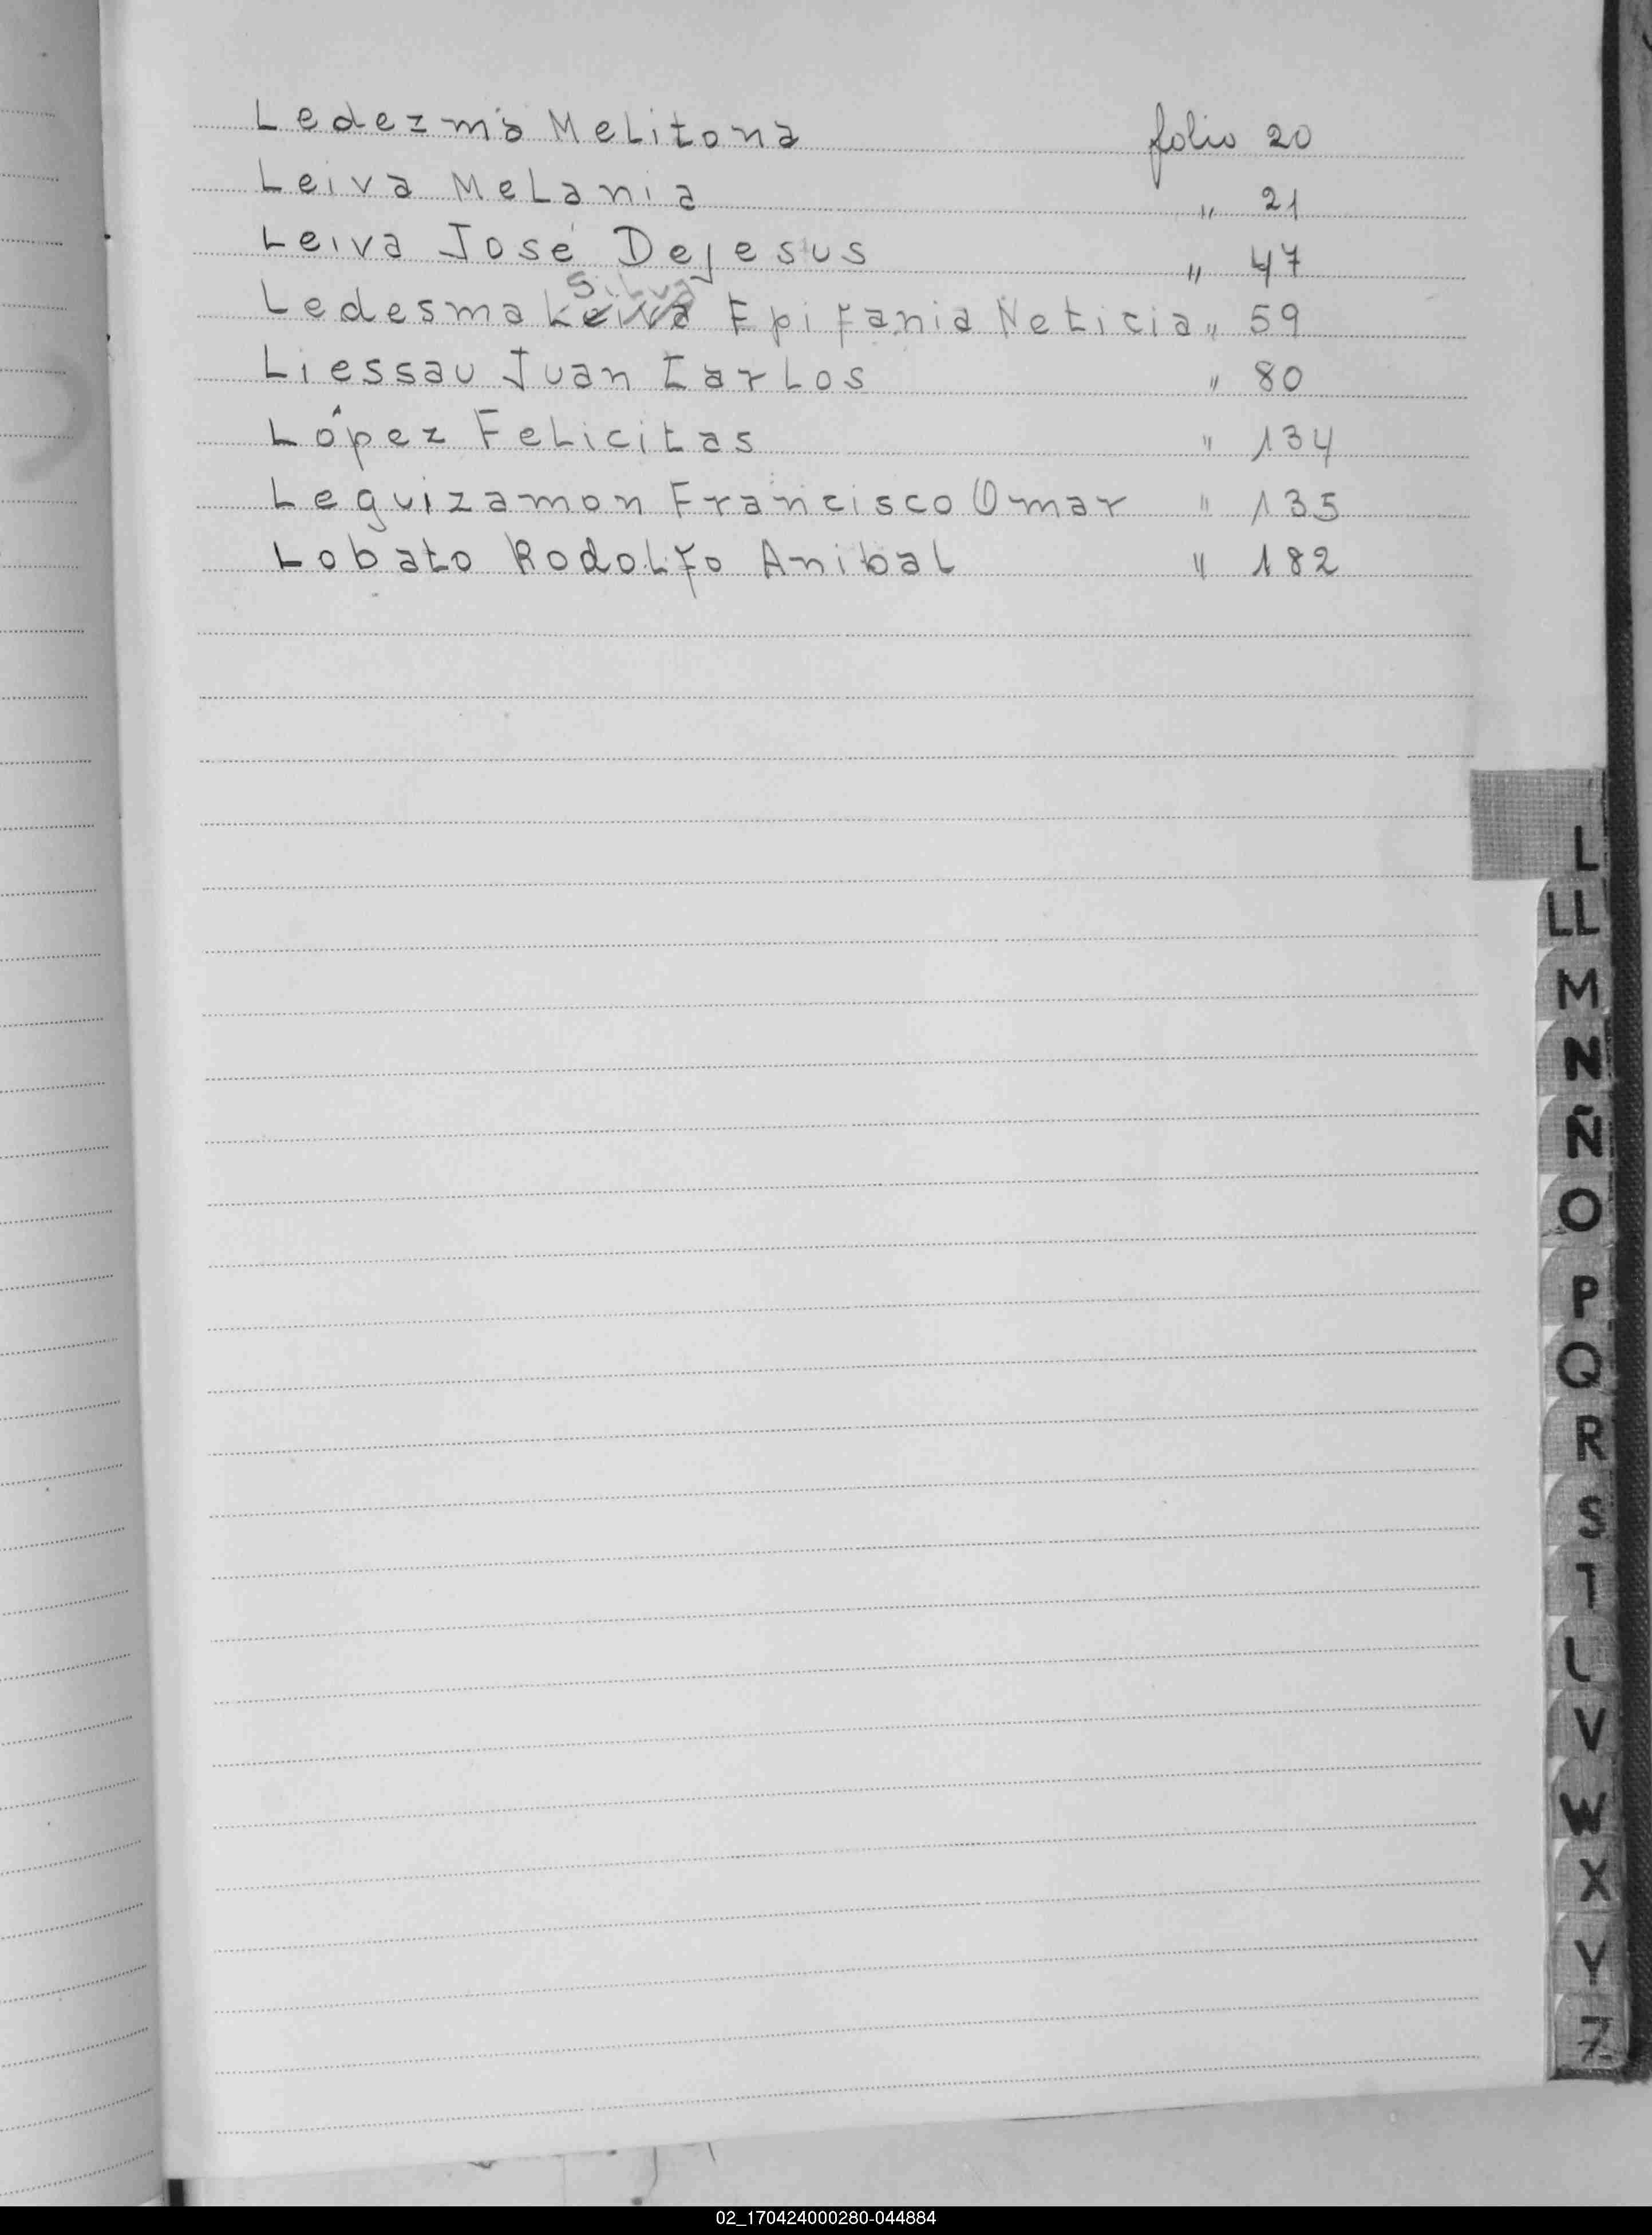 Ledezma Melitona folio 20
Leiva Melania " 21
Leiva José Dejesus " 47
Silva
Ledesma Leiva Epifania Neticia " 59
Liessau Juan Carlos " 80
López Felicitas " 134
Leguizamon Francisco Omar " 135
Lobato Rodolfo Anibal " 182
L
LL
M
N
Ñ
O
P
Q
R
S
T
V
W
X
Y
Z
02_170424000280-044884